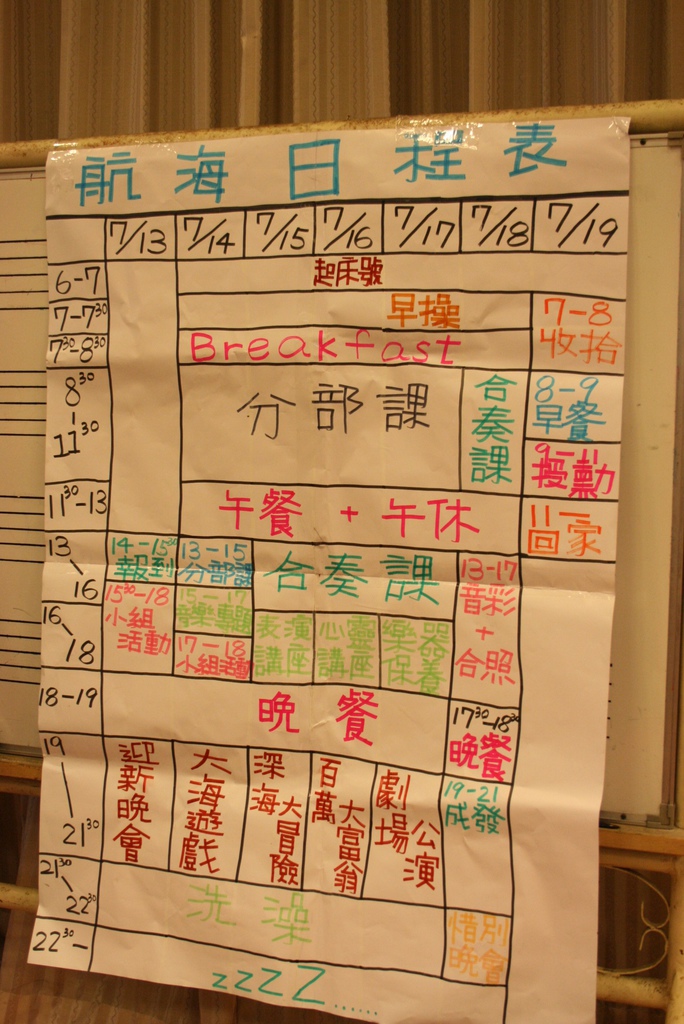 航海日程表
7/13 7/14 7/15 7/16 7/17 7/18 7/19
6-7 起床號
7-7³⁰ 早操 7-8
7³⁰-8³⁰ Breakfast 收拾
8³⁰-11³⁰ 分部課 合奏課 8-9
早餐
9-11
11³⁰-13 午餐 + 午休 11-
回家
13-16 14-15³⁰ 13-15 合奏課 13-17
報到 分部課 音彩
15³⁰-18 15-17 +
小組 音樂專題 合照
活動
16-18 17-18 表演 心靈 樂器
小組活動 講座 講座 保養
18-19 晚餐 17³⁰-18³⁰
晚餐
19-21³⁰ 迎新晚會 大海遊戲 深海大冒險 百萬大富翁 劇場公演 19-21
成發
21³⁰-22³⁰ 洗澡 惜別
晚會
22³⁰- zzZZ......